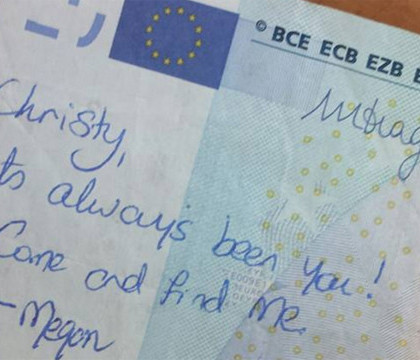 © BCE ECB EZB
Christy,
Its always been you!
Come and find me.
-Megan